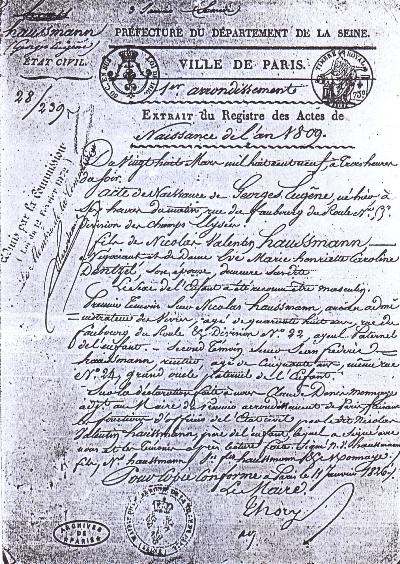 haussmann
Georges Eugène
ÉTAT CIVIL.
28/239
PRÉFECTURE DU DÉPARTEMENT DE LA SEINE.
VILLE DE PARIS.
TIMBRE ROYAL
1er arrondissement
EXTRAIT du Registre des Actes de
Naissance de l'an 1809.
Du Vingt huit Mars mil huit cent neuf, à Trois heures
du soir,
acte de Naissance de Georges Eugène, né hier à
Six heures du matin, rue du faubourg du Roule No
Division des Champs Elysées
fils de Nicolas Valentin haussmann
Négociant et de Dame Eve Marie henriette Caroline
Dentzel, son épouse, demeure susdite
Le Sexe de l'Enfant a été reconnu être masculin.
Premier Témoin Sieur Nicolas haussmann, ancien admi-
nistrateur de agé de quarante huit ans, rue du
faubourg du Roule Division No 22, ayeul Paternel
de l'enfant. Second Témoin Sieur Jean fréderic
haussmann rentier agé de Cinquante ans, même rue
No 24, grand oncle paternel de l'Enfant.
Sur la déclaration faite à nous
adjt au Maire du premier arrondissement de Paris, faisant
les fonctions d'officier de l'État civil par le dit Nicolas
Valentin haussmann, père de l'enfant, lequel a signé avec
nous et les témoins après lecture faite. Signé N. V. haussmann
fils, Ns haussmann, haussmann
Pour copie Conforme à Paris le 11 Janvier 1826
Le Maire
admise par la Commission
Le Membre de la
ARCHIVES
DE PARIS